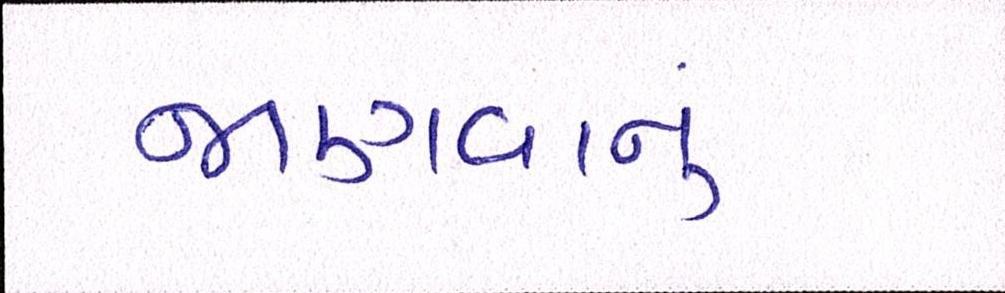 જાણવાનું